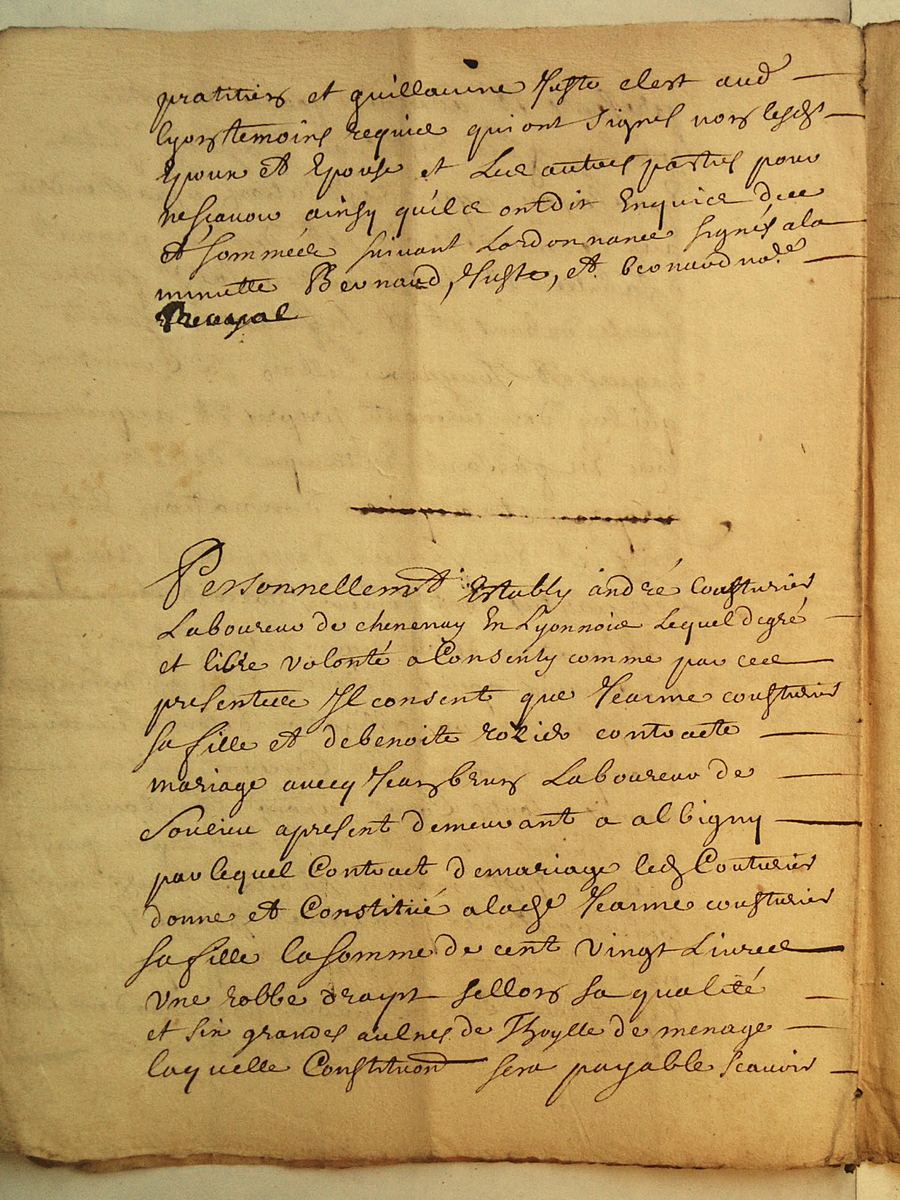 pratitiens et guillaume Juste clert aud
lyon temoins requis qui ont signes non lesds
Epoux et Epouse et Les autres parties pour
nescavoir ainsy quils ont dit Enquis deue
et sommés suivant Lordonnance signés a la
minutte Bernard, Juste, et bernard nore
Personnellemt Estably andré Cousturier
Laboureur de chenenay En Lyonnois Lequel degré
et libre volonté a Consenty comme par ces
presentes Il consent que Jeanne cousturier
sa fille et de benoite rozier contracte
mariage avecq Jean brun Laboureur de
Soucieu apresent demeurant a albigny
par lequel Contract de mariage leds Couturier
donne et Constitué a lade Jeanne cousturier
sa fille la somme de cent vingt Livres
Une robbe drapt sellon sa qualité
et six grandes aulnes de Thoylle de menage
laquelle Constituon sera payable scavoir